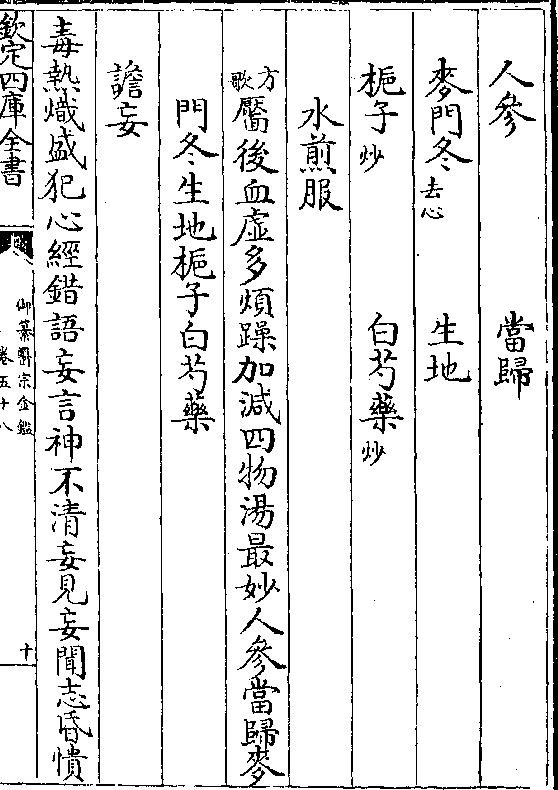 人參　當歸
麥門冬去心　生地
梔子炒　白芍藥炒
水煎服
方歌靨後血虛多煩躁加減四物湯最妙人參當歸麥
門冬生地梔子白芍藥
譫妄
毒熱熾盛犯心經錯語妄言神不清妄見妄聞志昏憒
欽定四庫全書
御纂醫宗金鑑
卷五十八
十